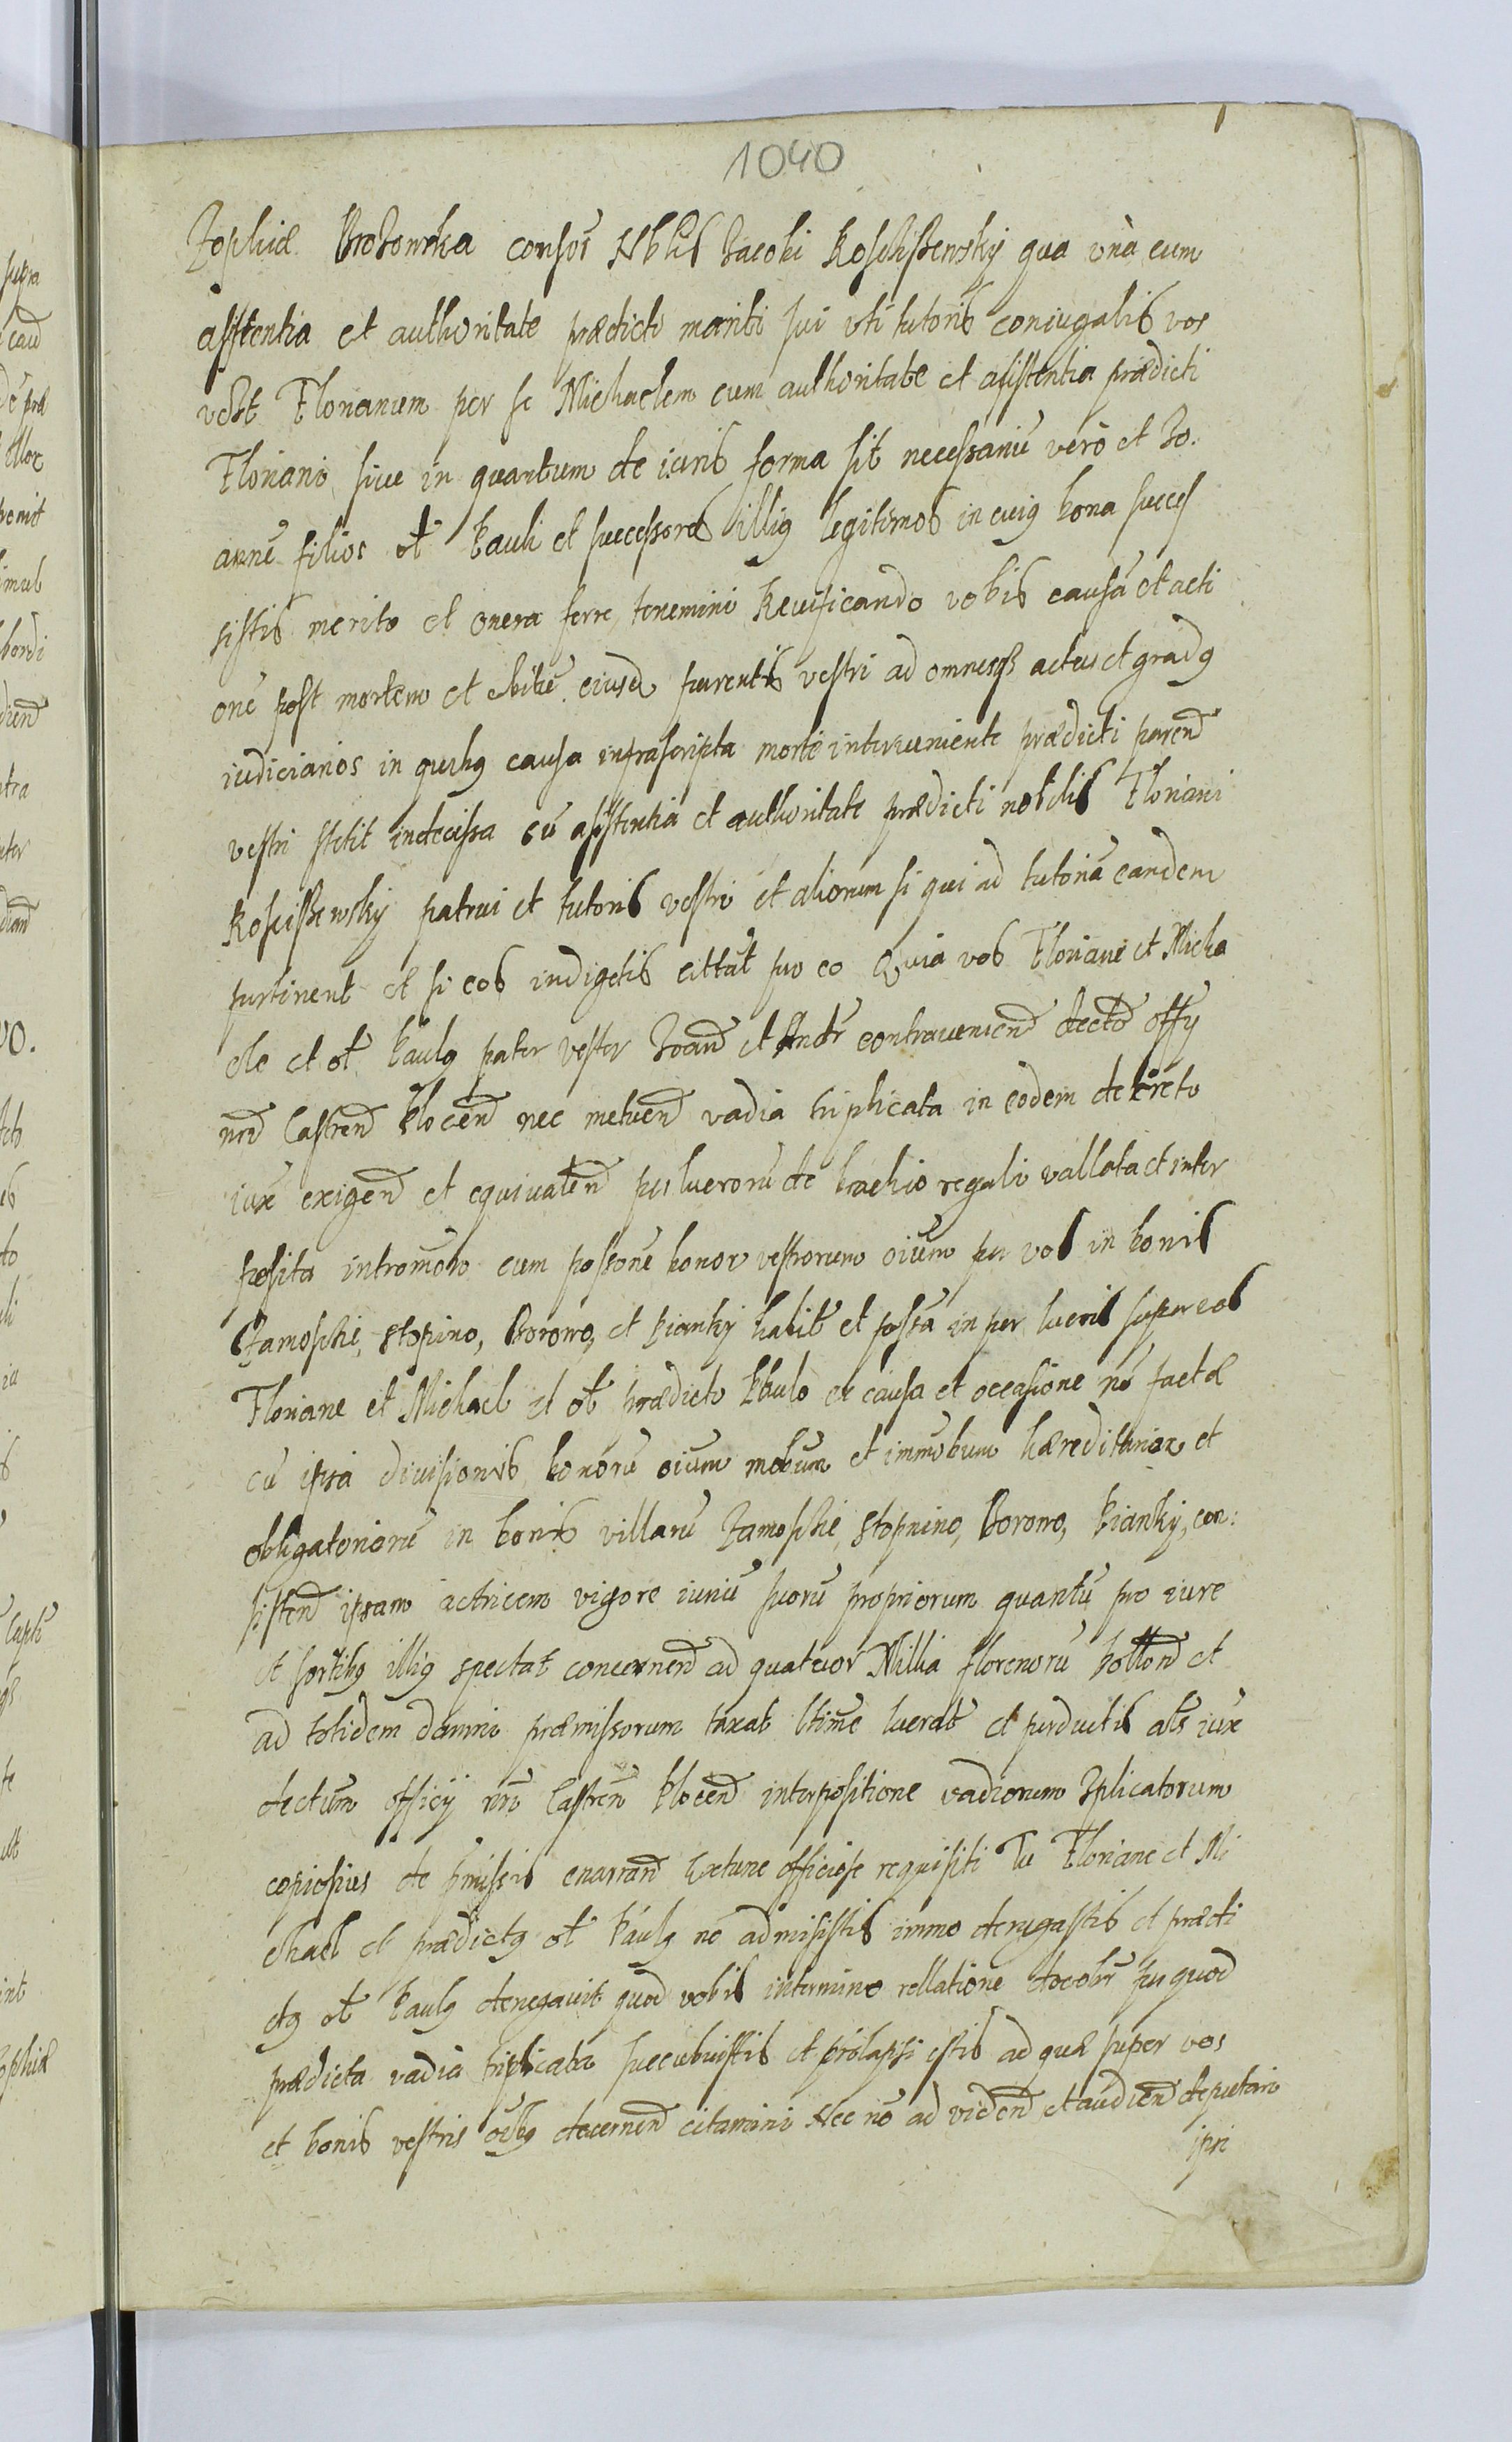 1040
Zophiæ Brozowska consors Nblis Jacobi Koschißewsky qua unà cum
assistentia et authoritate prædicti mariti sui uti tutoris coniugalis vos
vest Florianum per se Michaelem cum authoritate et assistentia prædicti
Floriani sive in quantum de iuris forma sit necessariū verò et Jo.
annē filios ol Pauli et successores illig legitimos in cuig bona succes
sistis merito et onera ferre tenemini Reuificando vobis causā et acti
onē post mortem et obitū eiusd parentis vestri ad omnesqs actus et gradg
iudiciarios in quibg causa infrascripta morte interueniente prædicti parend
vestri stetit indecissa cū assistentia et authoritate prædicti nobilis Floriani
Koscißewsky patrui et tutoris vestri et aliorum si qui ad tutoriā eandem
pertinent et si eos indigetis cittat pro eo Quia vos Floriane et Micha
ele et ol Paulg pater vester Joand et Andr contraueniend decto offy
nrō Castrend Plocend nec metuend vadia triplicata in eodem decreto
iux exigend et equiualend per lucrorū de brachio regali vallata et inter
posita intromōm cum posonē bonor vestrorum oium per vos in bonis
Zamoschie, Stopino, Borowo, et Pianky habit et possa in per lucris super eos
Floriane et Michael et ol prædicto Paulo ex causa et occasione nō factæ
cū ipsa divisionis bonorū oium mobum et immobum hæreditarior et
obligatoriorū in bonis villarū Zamoschie, Stopnino, Borowo, Pianky, con:
sistend ipsam actricem vigore iuriū suorū propriorum quantū pro iure
et sortibg illig spectat concernend ad quatuor Millia florenorū pollond et
ad totidem damni præmissorum taxat ltime lucrat et perductis als iux
dectum officÿ nri Castren Plocend interpositione vadiorum 3plicatorum
copiosius de pmissis enarrand Extunc officiose requisiti Tu Floriane et Mi
chael et prædictg ol Paulg nō admisistis immo denegastis et prædi
ctg ol Paulg denegavit quod vobis in termino rellatione docebr per quod
prædicta vadia triplicata succubuistis et prolapsi estis ad quæ super vos
et bonis vestris oibg decernend citamini Nec nō ad vidend et audiend deputari
ipsi